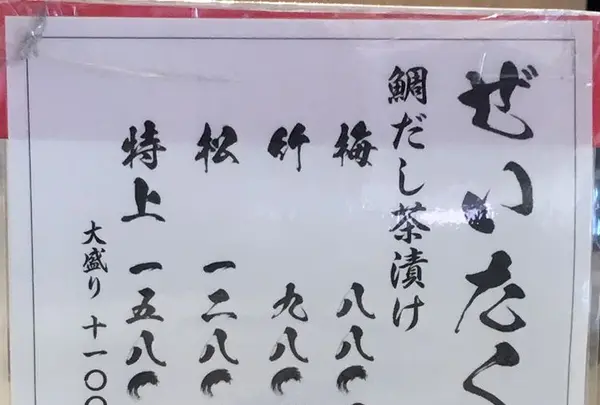 ぜいたく
鯛だし茶漬け
梅 八八〇
竹 九八〇
松 一二八〇
特上 一五八〇
大盛り 十一〇〇